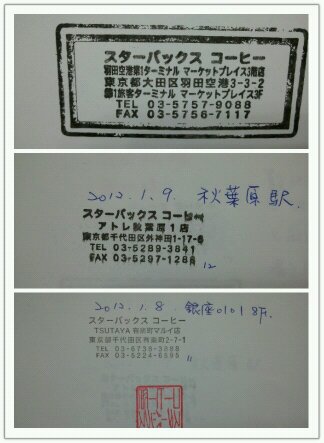 スターバックス コーヒー
羽田空港第1ターミナル マーケットプレイス3階店
東京都大田区羽田空港3-3-2
第1旅客ターミナル マーケットプレイス3F
TEL 03-5757-9088
FAX 03-5756-7117
2012.1.9. 秋葉原駅.
スターバックス コーヒー
アトレ秋葉原1店
東京都千代田区外神田1-17-6
TEL 03-5289-3841
FAX 03-5297-1288
12
2012.1.8. 銀座0101 8F.
スターバックス コーヒー
TSUTAYA 有楽町マルイ店
東京都千代田区有楽町2-7-1
TEL 03-6738-3888
FAX 03-5224-6895
11